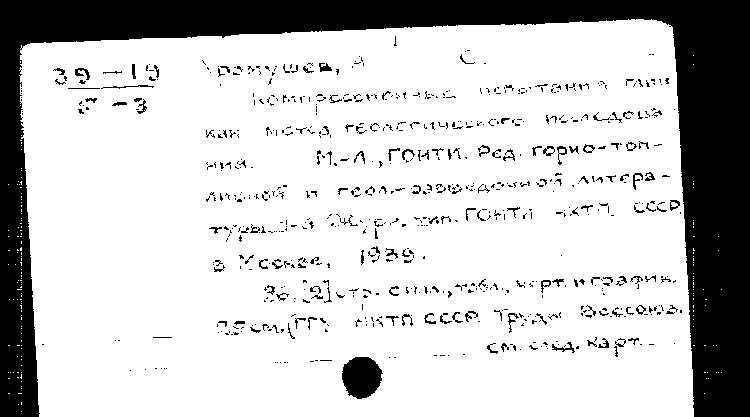 39-19 А С.
-3
Компрессионные испытания глин
как метод геологического исследова
ния. М.-Л., ГОНТИ. Ред. горно-топ-
ливной и геол.-разведочной литера-
туры. Журн. тип. ГОНТИ НКТП СССР
в Москве, 1939.
36. [2] стр. с илл., табл., черт. и график.
25 см. (ГГУ НКТП СССР. Труды Всесоюз.
см. след. карт.